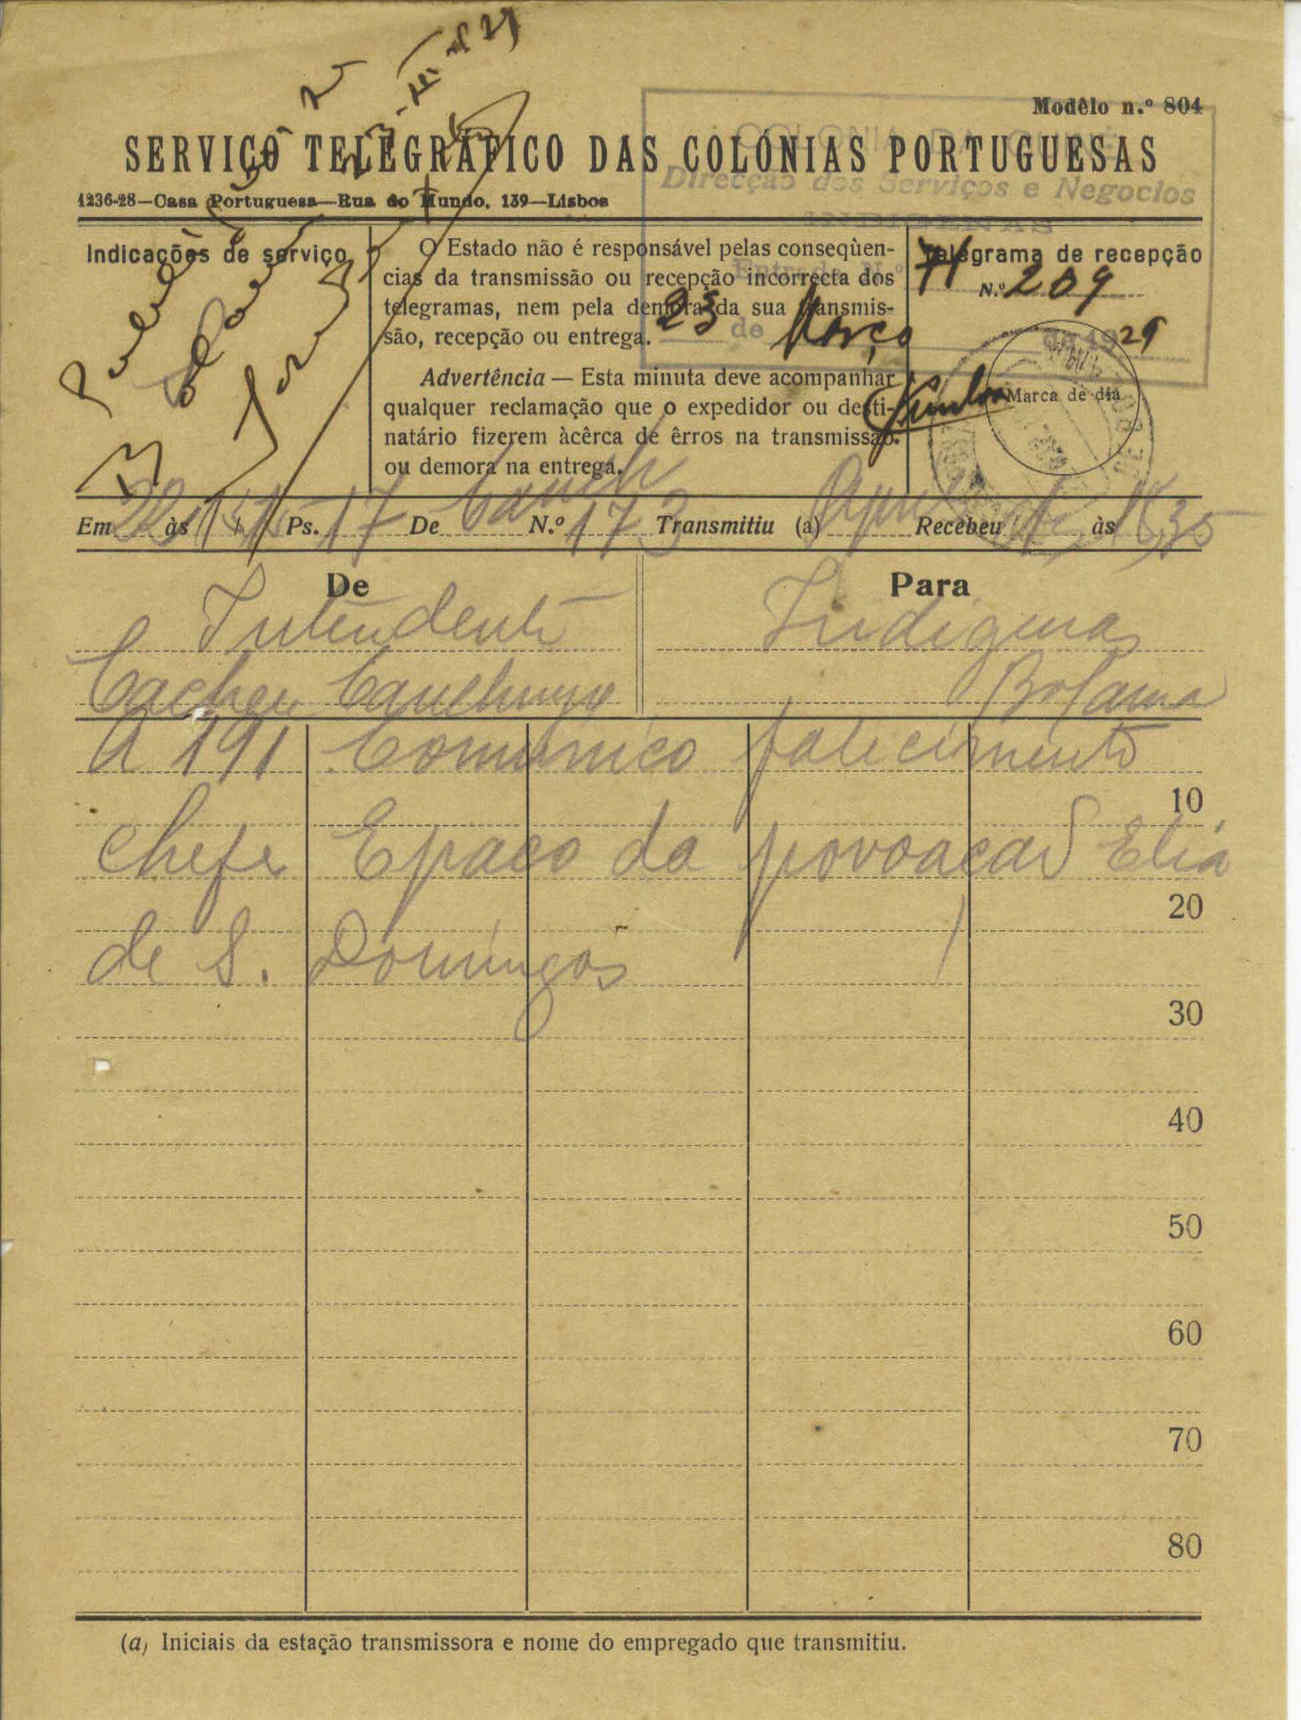 Modêlo n.º 804
SERVIÇO TELEGRÁFICO DAS COLÓNIAS PORTUGUESAS
1236-28—Casa Portuguesa—Rua do Mundo, 139—Lisboa
COLONIA DA GUINÉ
Direcção dos Serviços e Negocios
INDIGENAS
Entrada N.º 71
23 de Março de 1929
Indicações de serviço
O Estado não é responsável pelas conseqüen-
cias da transmissão ou recepção incorrecta dos
telegramas, nem pela demora da sua transmis-
são, recepção ou entrega.
Advertência — Esta minuta deve acompanhar
qualquer reclamação que o expedidor ou desti-
natário fizerem àcêrca de êrros na transmissão.
ou demora na entrega.
Telegrama de recepção
N.º 209
Marca de dia
Em 22 às Ps. 17 De N.º 173 Transmitiu (a) Recebeu às
De
Intendente
Cacheu Canchungo
Para
Indigenas
Bolama
A 191 Comunico falecimento
10
chefe Epaco da povoacao Elia
20
de S. Domingos
30
40
50
60
70
80
(a) Iniciais da estação transmissora e nome do empregado que transmitiu.